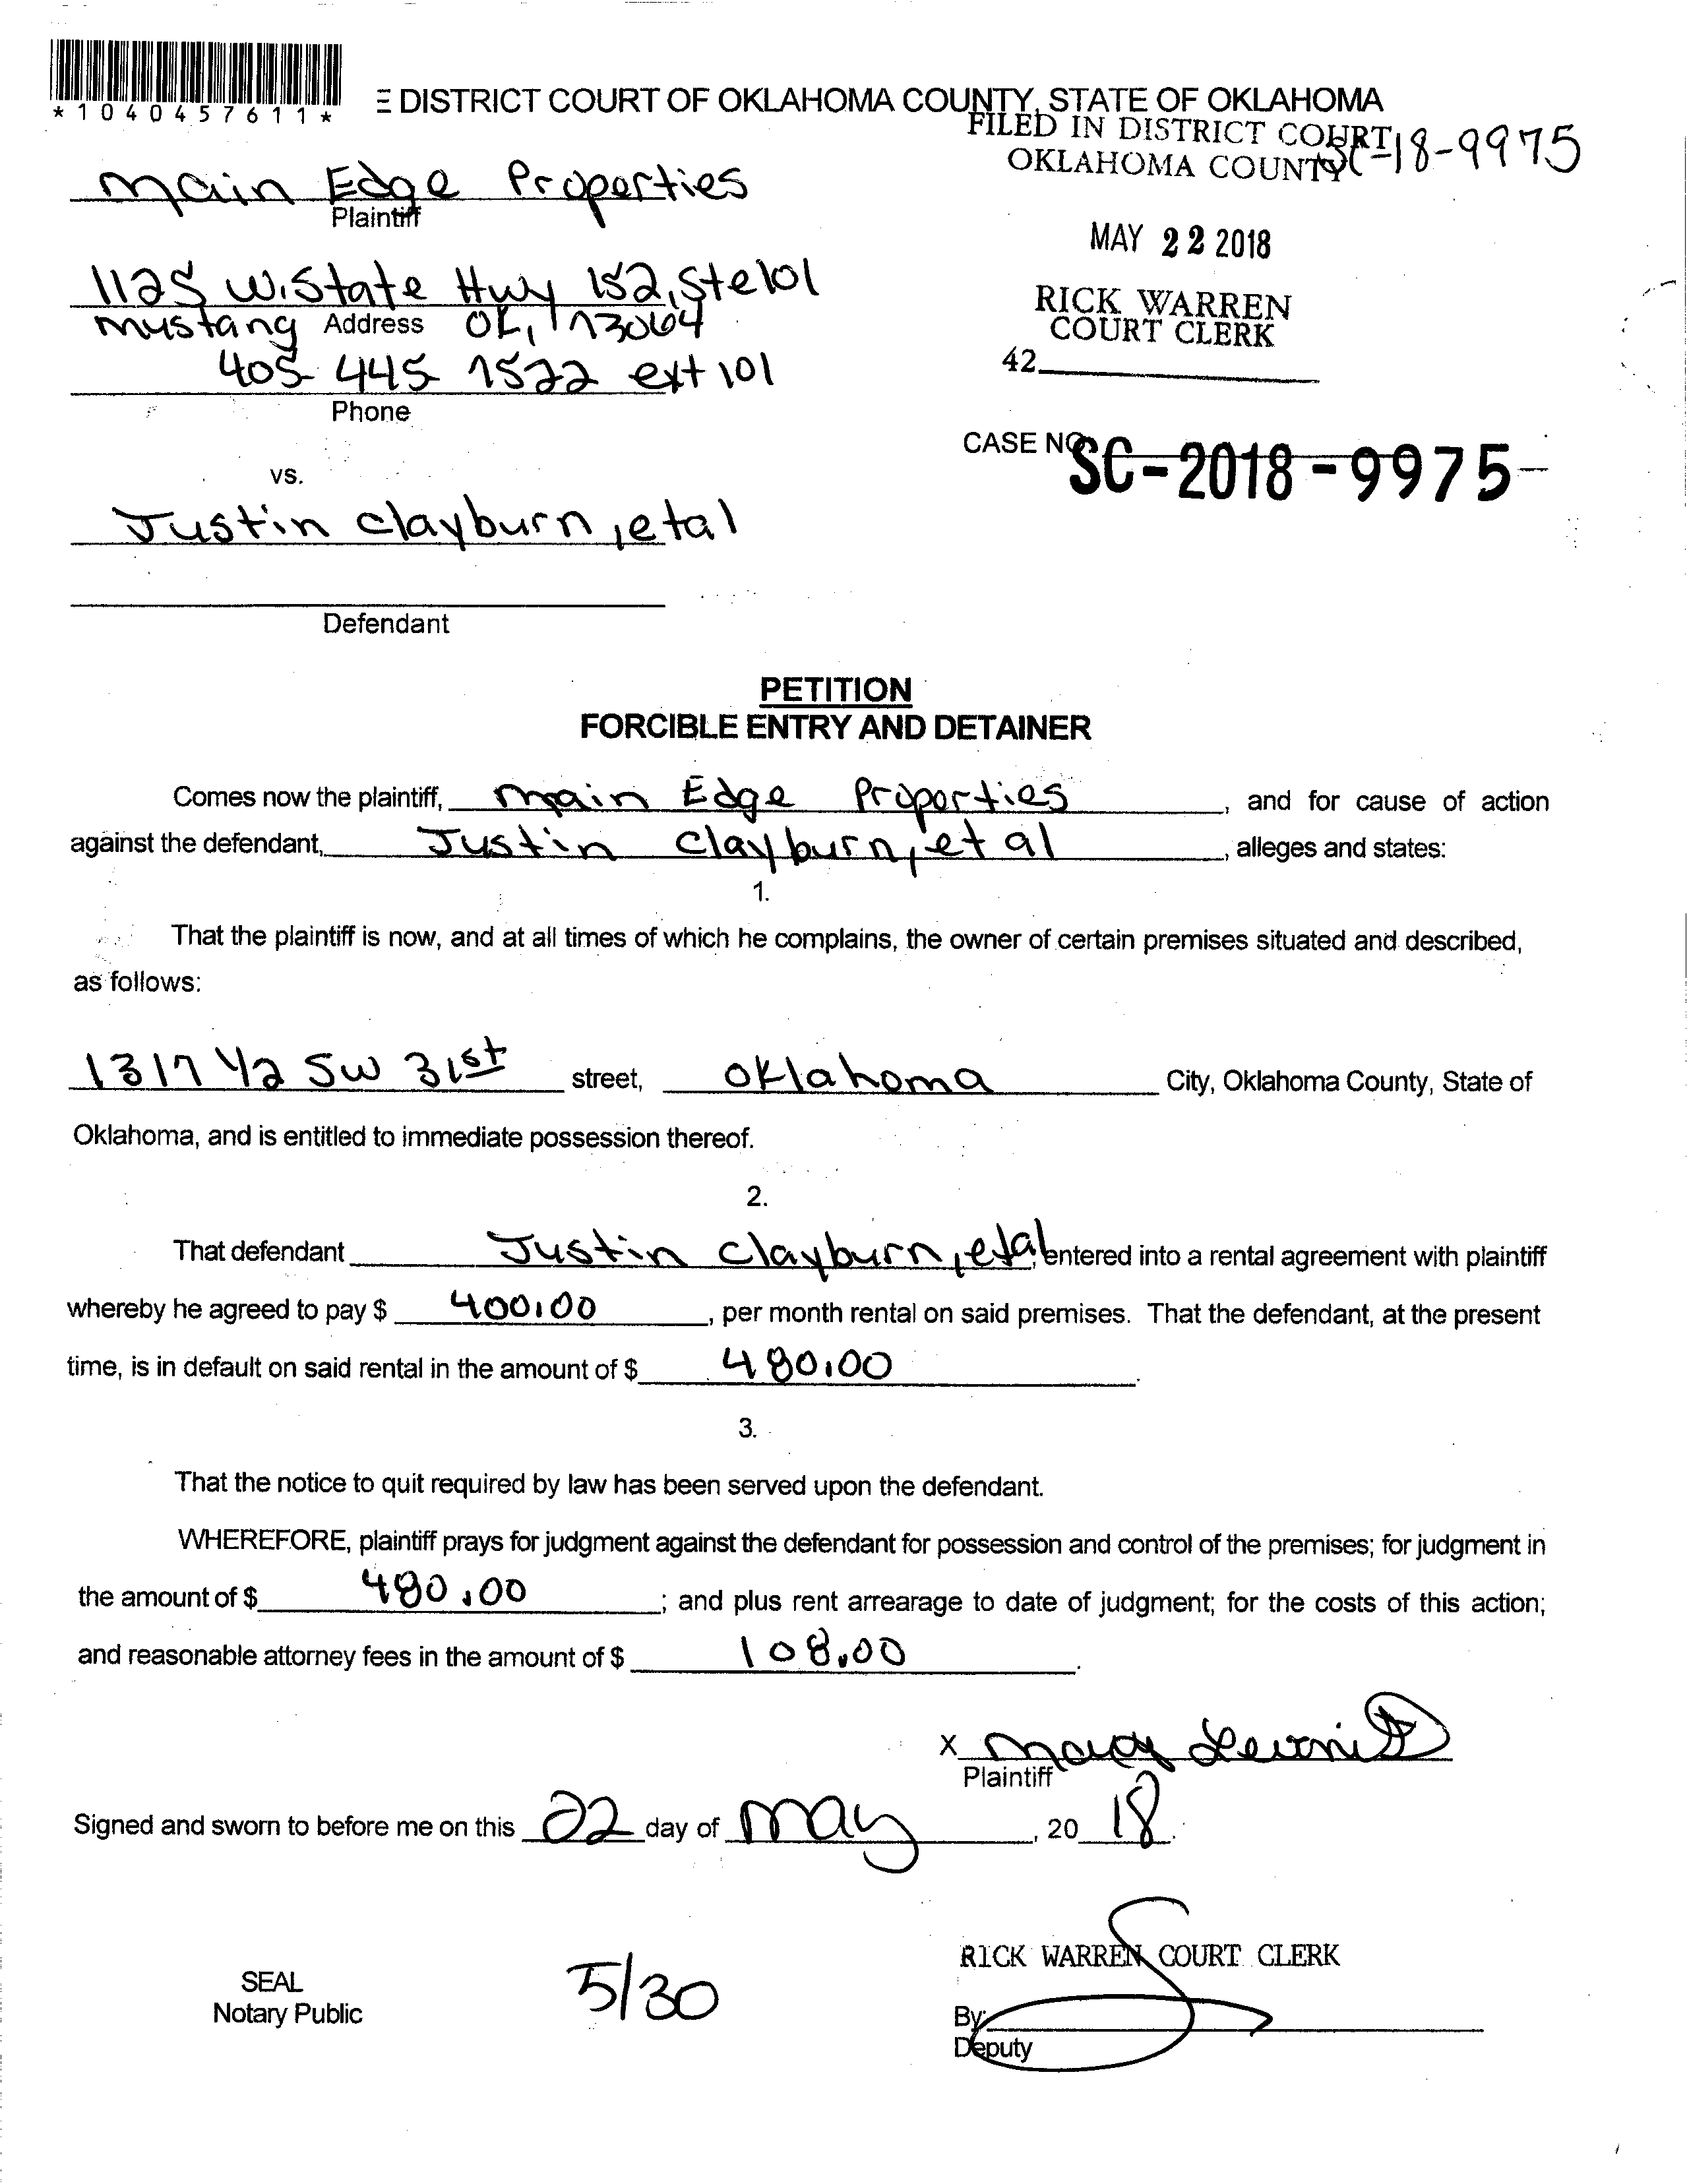 *1040457611*
E DISTRICT COURT OF OKLAHOMA COUNTY, STATE OF OKLAHOMA
FILED IN DISTRICT COURT
OKLAHOMA COUNTY
SC-18-9975
Main Edge Properties
Plaintiff
MAY 22 2018
1125 W. State Hwy 152, Ste 101
Mustang Address OK, 73064
RICK WARREN
COURT CLERK
405-445-7522 ext 101
42
Phone
CASE NO. SC-2018-9975
vs.
Justin Clayburn, et al
Defendant
PETITION
FORCIBLE ENTRY AND DETAINER
Comes now the plaintiff, Main Edge Properties, and for cause of action
against the defendant, Justin Clayburn, et al, alleges and states:
1.
That the plaintiff is now, and at all times of which he complains, the owner of certain premises situated and described,
as follows:
1317 1/2 SW 31st street, Oklahoma City, Oklahoma County, State of
Oklahoma, and is entitled to immediate possession thereof.
2.
That defendant Justin Clayburn, et al, entered into a rental agreement with plaintiff
whereby he agreed to pay $ 400.00, per month rental on said premises. That the defendant, at the present
time, is in default on said rental in the amount of $ 480.00.
3.
That the notice to quit required by law has been served upon the defendant.
WHEREFORE, plaintiff prays for judgment against the defendant for possession and control of the premises; for judgment in
the amount of $ 480.00; and plus rent arrearage to date of judgment; for the costs of this action;
and reasonable attorney fees in the amount of $ 108.00.
X
Plaintiff
Signed and sworn to before me on this 22 day of May, 20 18.
RICK WARREN COURT CLERK
SEAL
Notary Public
5/30
By:
Deputy